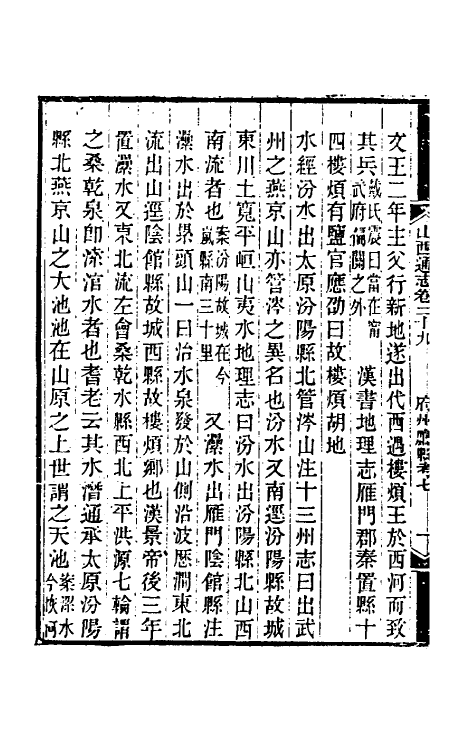 文王二年主父行新地遂出代西遇樓煩王於西河而致
其兵戴氏震曰當在甯武府偏關之外 漢書地理志雁門郡秦置縣十
四樓煩有鹽官應劭曰故樓煩胡地
水經汾水出太原汾陽縣北管涔山注十三州志曰出武
州之燕京山亦管涔之異名也汾水又南逕汾陽縣故城
東川土寬平峘山夷水地理志曰汾水出汾陽縣北山西
南流者也案汾陽故城在今嵐縣南三十里 又㶟水出雁門陰館縣注
㶟水出於累頭山一曰治水泉發於山側沿波歷澗東北
流出山逕陰館縣故城西縣故樓煩鄉也漢景帝後三年
置㶟水又東北流左會桑乾水縣西北上平洪源七輪謂
之桑乾泉卽溹涫水者也耆老云其水潛通承太原汾陽
縣北燕京山之大池池在山原之上世謂之天池案㶟水今桑河
山西通志卷二十九 府州廳縣考七